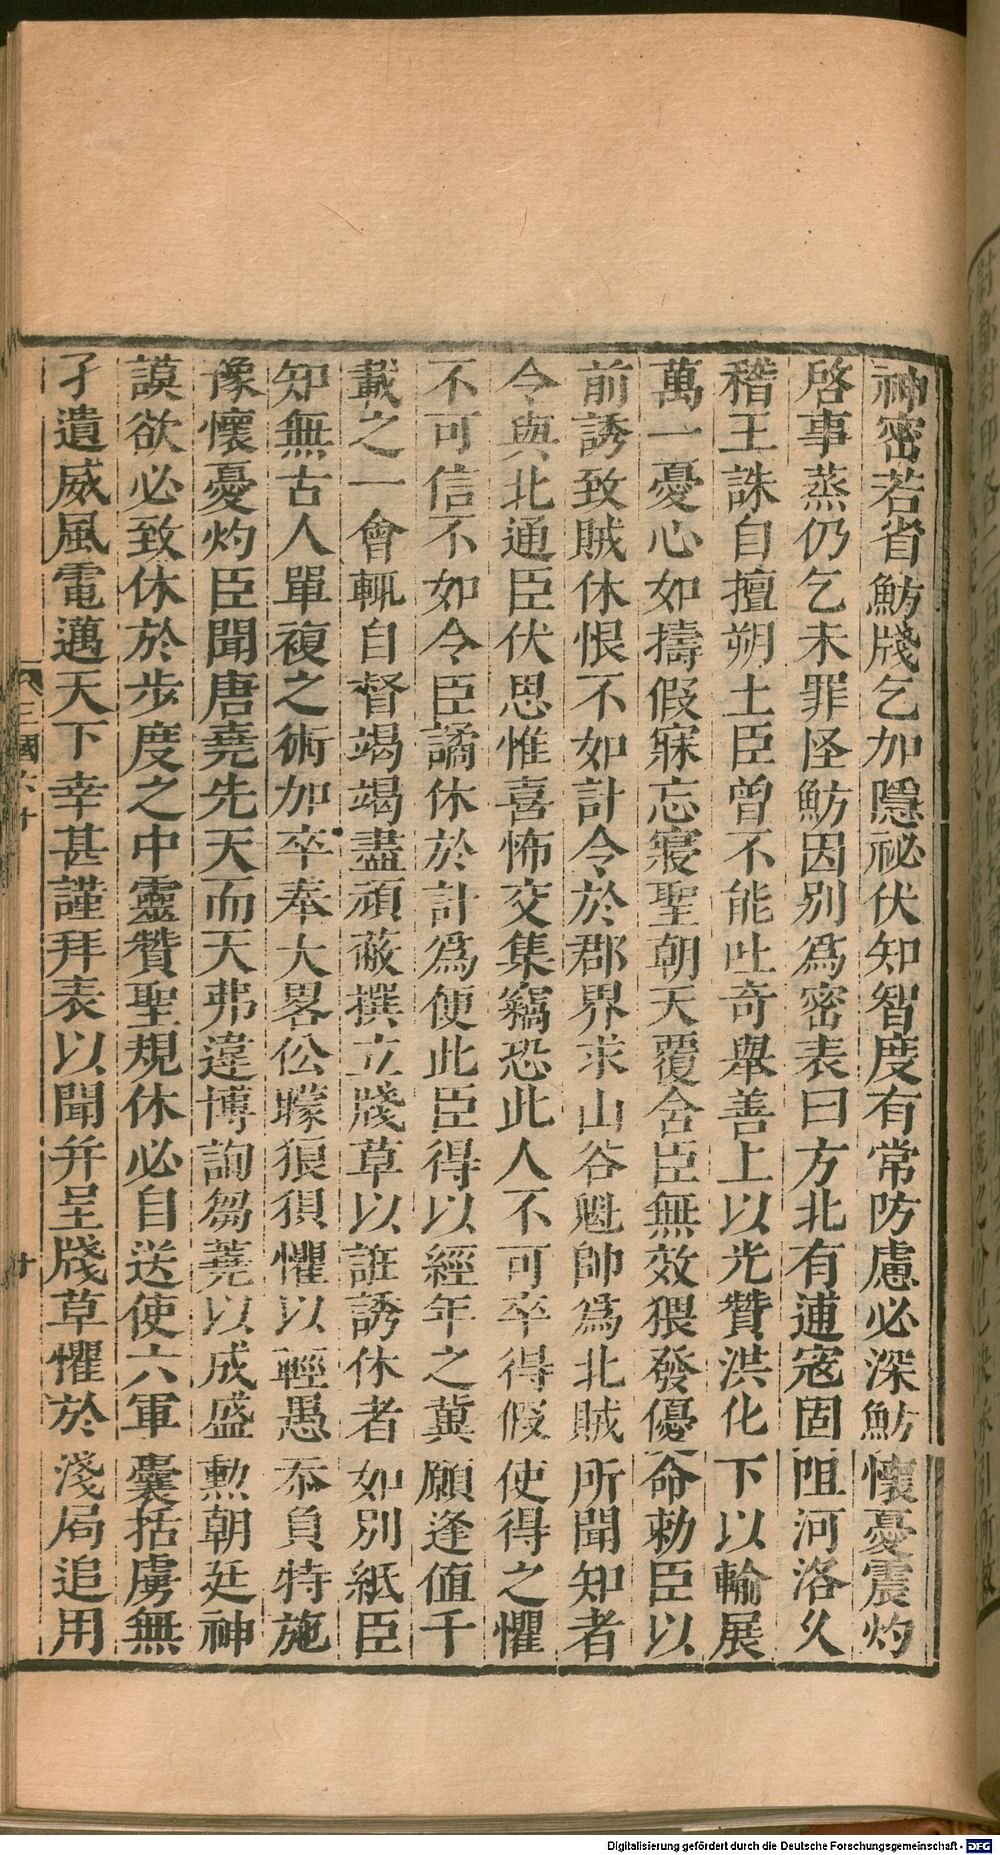 神密若省魴牋乞加隱祕伏知智度有常防慮必深魴懷憂震灼
啓事蒸仍乞未罪怪魴因别爲密表曰方北有逋寇固阻河洛久
稽王誅自擅朔土臣曾不能吐奇舉善上以光贊洪化下以輸展
萬一憂心如擣假寐忘寢聖朝天覆含臣無效猥發優命勅臣以
前誘致賊休恨不如計令於郡界求山谷魁帥爲北賊所聞知者
令與北通臣伏思惟喜怖交集竊恐此人不可卒得假使得之懼
不可信不如令臣譎休於計爲便此臣得以經年之冀願逢值千
載之一會輒自督竭竭盡頑蔽撰立牋草以誑誘休者如别紙臣
知無古人單複之術加卒奉大畧伀矇狼狽懼以輕愚忝負特施
豫懷憂灼臣聞唐堯先天而天弗違博詢芻蕘以成盛勲朝廷神
謨欲必致休於步度之中靈贊聖規休必自送使六軍囊括虜無
孑遺威風電邁天下幸甚謹拜表以聞并呈牋草懼於淺局追用
三國六十
廿
Digitalisierung gefördert durch die Deutsche Forschungsgemeinschaft - DFG